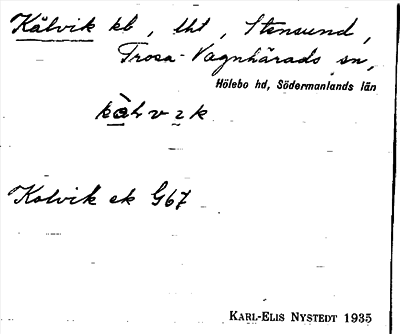 Kålvik kb, tht, Stensund,
Trosa-Vagnhärads sn,
Hölebo hd, Södermanlands län
Kolvik ek G67
KARL-ELIS NYSTEDT 1935